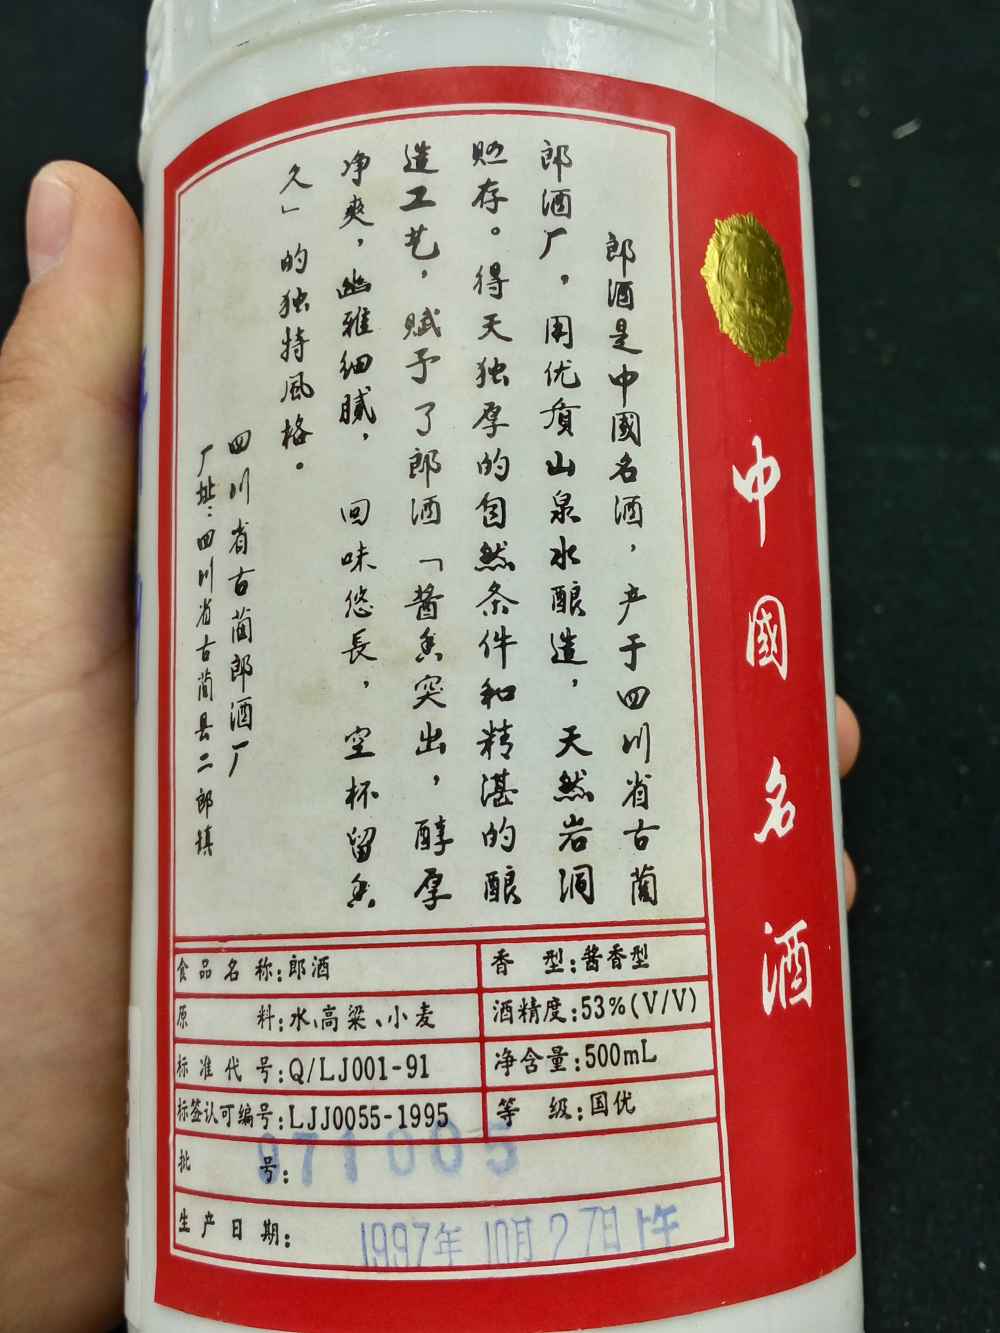 中國名酒
郎酒是中國名酒，产于四川省古蔺
郎酒厂，用优质山泉水酿造，天然岩洞
贮存。得天独厚的自然条件和精湛的酿
造工艺，赋予了郎酒「酱香突出，醇厚
净爽，幽雅细腻，回味悠長，空杯留香
久」的独特風格。
四川省古蔺郎酒厂
厂址：四川省古蔺县二郎镇
食品名称:郎酒
香型:酱香型
原料:水、高粱、小麦
酒精度:53%(V/V)
标准代号:Q/LJ001-91
净含量:500mL
标签认可编号:LJJ0055-1995
等级:国优
批号:971005
生产日期:1997年10月27日上午